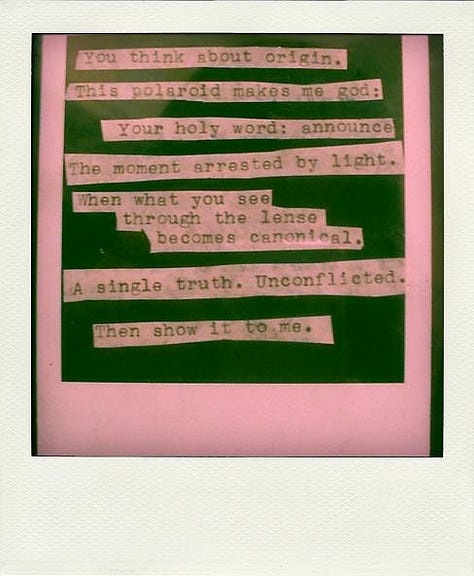 You think about origin.
This polaroid makes me god:
Your holy word: announce
The moment arrested by light.
When what you see
through the lense
becomes canonical.
A single truth. Unconflicted.
Then show it to me.